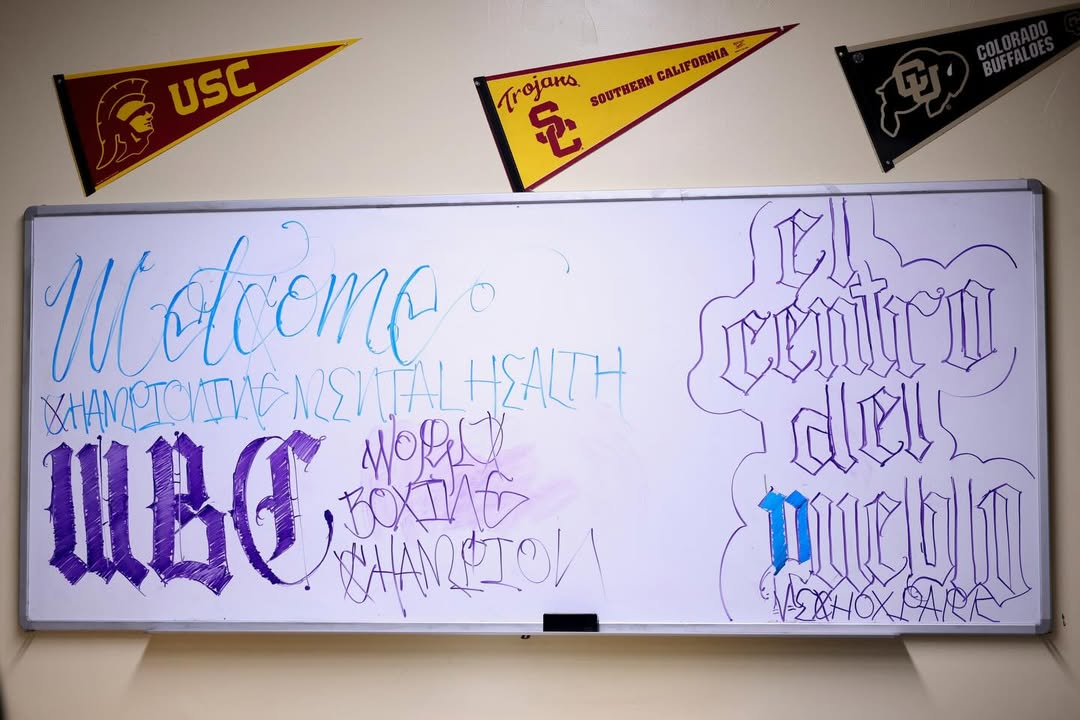 USC
Trojans
SC
SOUTHERN CALIFORNIA
CU
COLORADO
BUFFALOES
Welcome
CHAMPIONING MENTAL HEALTH
WBC
WORLD
BOXING
CHAMPION
el
centro
del
pueblo
ECHO PARK